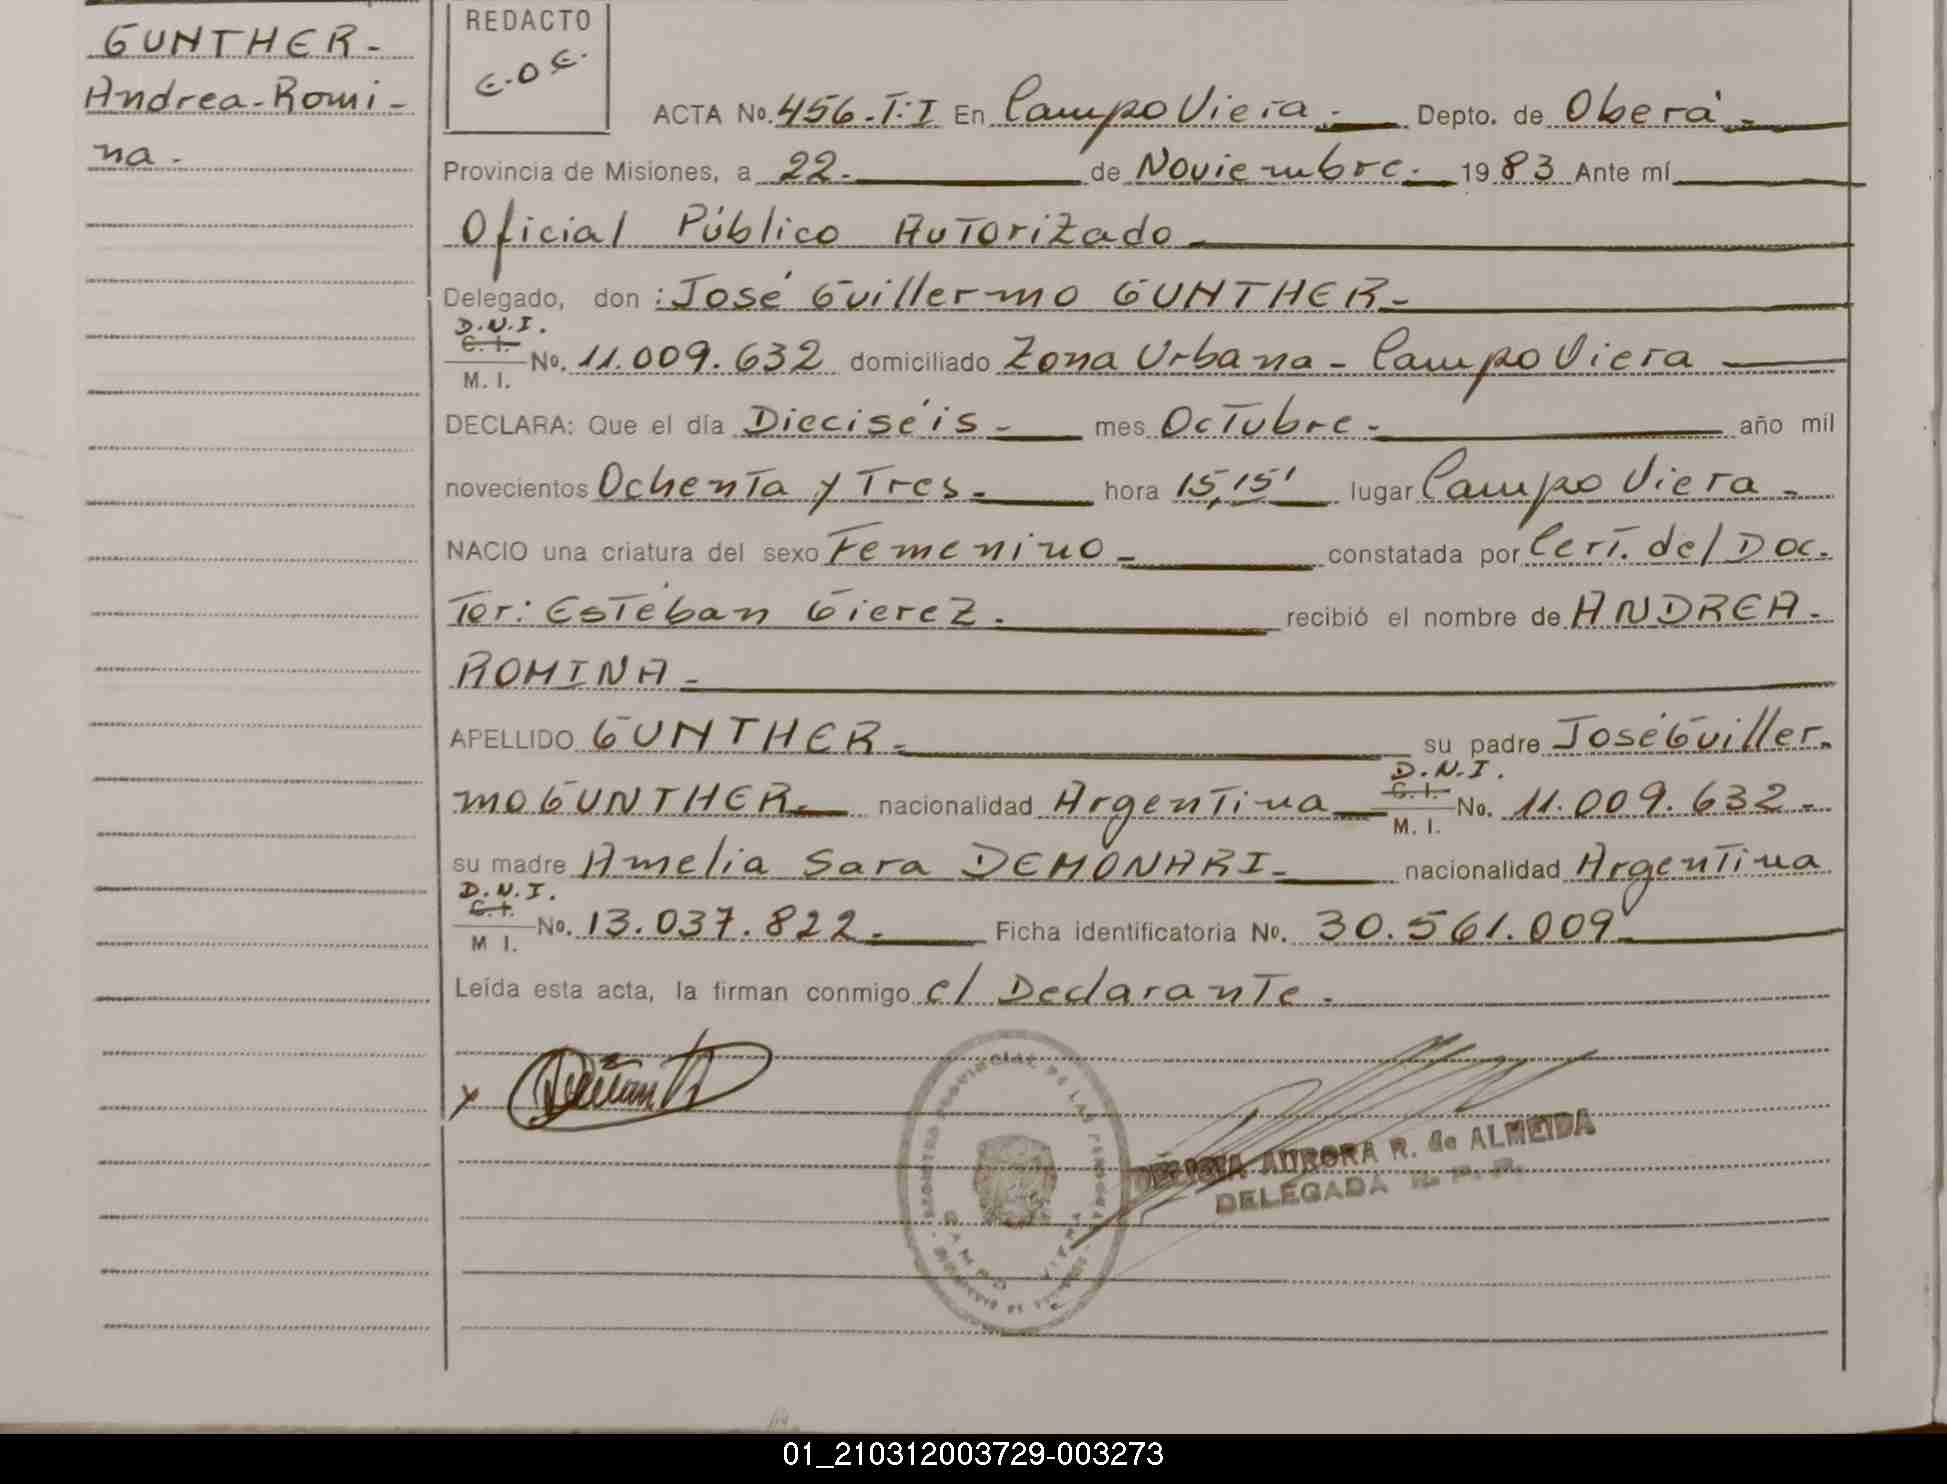 GUNTHER-
Andrea-Romi-
na.
REDACTO
E.O.E.
ACTA No. 456.T:I En Campo Viera.- Depto. de Oberá-
Provincia de Misiones, a 22. de Noviembre. 1983 Ante mí
Oficial Público Autorizado
Delegado, don: José Guillermo GUNTHER-
D.N.I.
C. I.
M. I. No. 11.009.632 domiciliado Zona Urbana - Campo Viera
DECLARA: Que el día Dieciséis- mes Octubre- año mil
novecientos Ochenta y Tres- hora 15,15' lugar Campo Viera-
NACIO una criatura del sexo Femenino- constatada por Cert. del Doc-
tor: Estéban Gierez. recibió el nombre de ANDREA-
ROMINA-
APELLIDO GUNTHER- su padre José Guiller-
mo GUNTHER- nacionalidad Argentina D.N.I. C. I. M. I. No. 11.009.632-
su madre Amelia Sara DEMONARI- nacionalidad Argentina
D.N.I.
C. I.
M I. No. 13.037.822- Ficha identificatoria No. 30.561.009
Leída esta acta, la firman conmigo el Declarante.
REGISTRO PROVINCIAL DE LAS PERSONAS
CAMPO VIERA
AURORA R. de ALMEIDA
DELEGADA R. P. P.
01_210312003729-003273